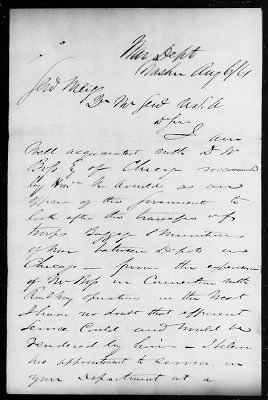 War Dept
Washn Aug 6/61
Genl Meigs
Qr Mr Genl USA
I am
well acquainted with D W
Boss Esq of Chicago recommended
by as an
of the government to
look after the transfer of
troops Baggage & Munitions
of war between Depots in
Chicago — from the experience
of Mr Boss in Connection with
Railway operations in the West
I have no doubt that efficient
service could and would be
rendered by him — I believe
his appointment to service in
your Department at a